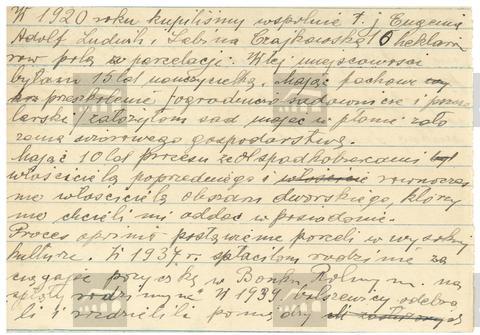 W 1920 roku kupiliśmy wspólnie t. j Eugenia
Adolf Ludwik i Sabina Czajkowska 10 hektarów
row pola z parcelacji. W tej miejscowości
byłam 15 lat nauczycielką. Mając fachowe
przeszkolenie /ogrodnicze sadownicze i pszcze
larskie/ założyłam sad mając w planie zało
żenie wzorowego gospodarstwa.
Mając 10 lat procesu ze spadkobiercami
właściciela poprzedniego i równocześ
nie właściciela obszaru dworskiego, który
nie chcieli mi oddać w posiadanie.
Proces opinię postawienie pszczeli w wysokiej
kulturze. W 1937 r. spłaciłam rodzinę za
ciągając pożyczkę w Banku Rolnym na
spłaty rodzinne W 1939 bolszewicy odebra
li i rozdzielili pomiędzy